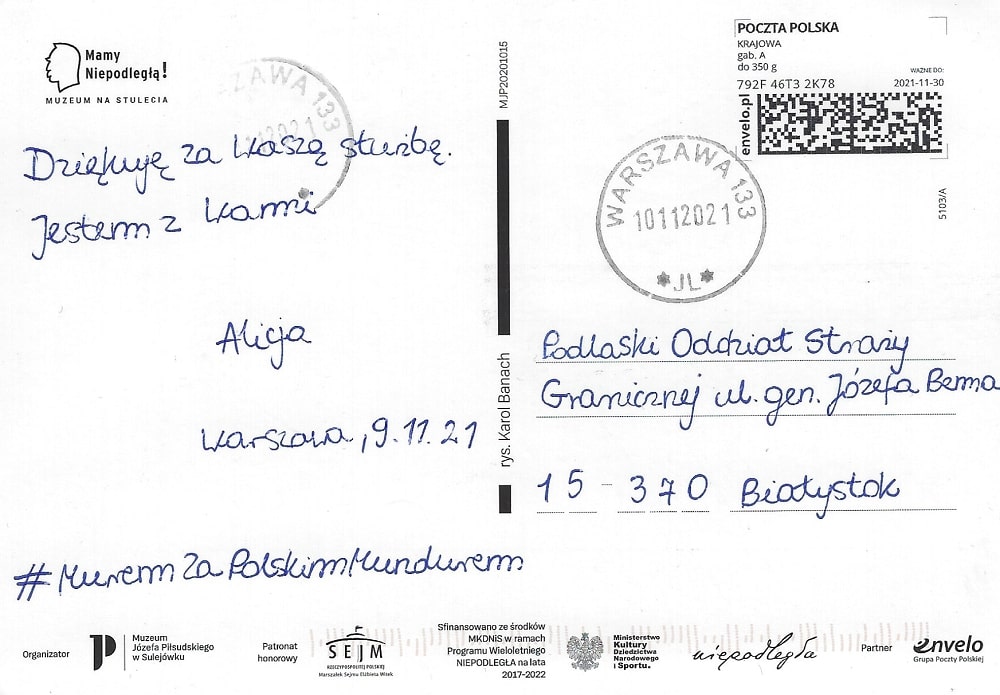 Mamy
Niepodległą!
MUZEUM NA STULECIA
WARSZAWA 133
10112021
Dziękuję za Waszą służbę.
Jestem z Wami
Alicja
Warszawa, 9.11.21
#MuremZaPolskimMundurem
MJP20201015
rys. Karol Banach
POCZTA POLSKA
KRAJOWA
gab. A
do 350 g
792F 46T3 2K78
WAŻNE DO:
2021-11-30
envelo.pl
5103/A
WARSZAWA 133
10112021
*JL*
Podlaski Oddział Straży
Granicznej ul. gen. Józefa Bema
15-370 Białystok
Organizator
Muzeum
Józefa Piłsudskiego
w Sulejówku
Patronat
honorowy
SEJM
RZECZYPOSPOLITEJ POLSKIEJ
Marszałek Sejmu Elżbieta Witek
Sfinansowano ze środków
MKDNiS w ramach
Programu Wieloletniego
NIEPODLEGŁA na lata
2017-2022
Ministerstwo
Kultury
Dziedzictwa
Narodowego
i Sportu.
niepodległa
Partner
envelo
Grupa Poczty Polskiej